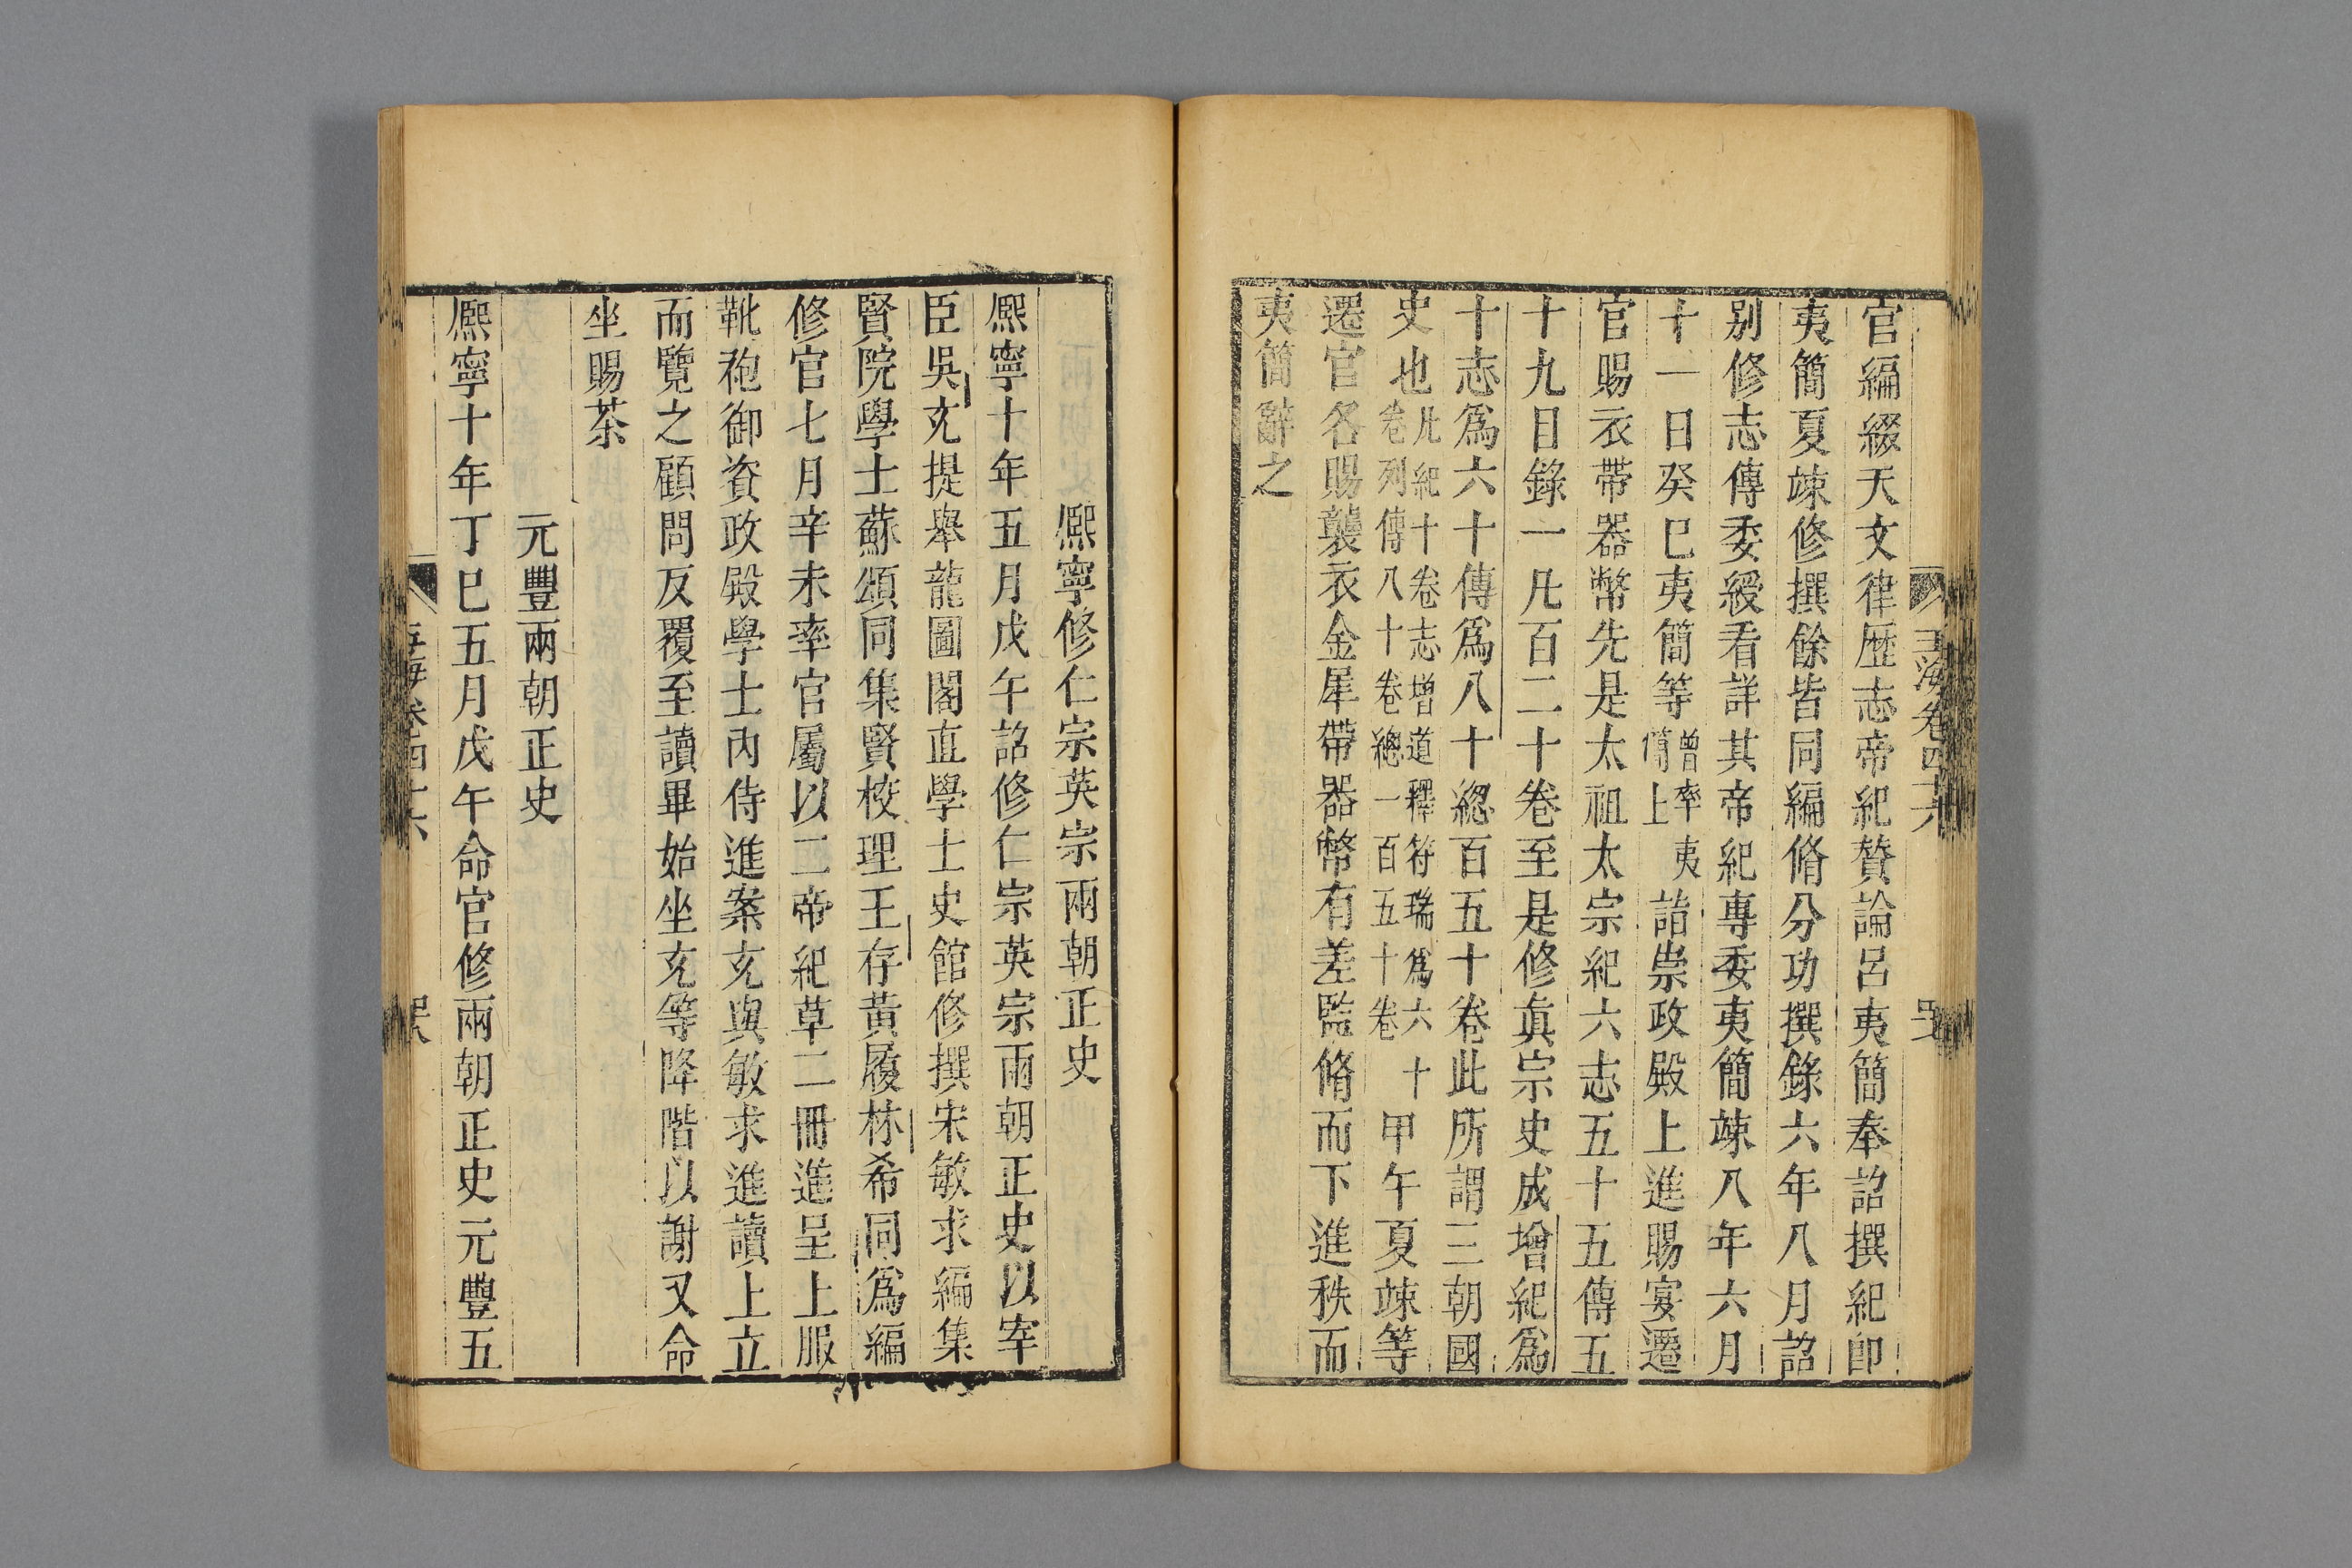 官編綴天文律歷志帝紀贊論呂夷簡奉詔撰紀卽
夷簡夏竦修撰餘皆同編脩分功撰錄六年八月詔
別修志傳委綬看詳其帝紀專委夷簡竦八年六月
十一日癸巳夷簡等曾率夷簡上詣崇政殿上進賜宴遷
官賜衣帶器幣先是太祖太宗紀六志五十五傳五
十九目錄一凡百二十卷至是修眞宗史成增紀爲
十志爲六十傳爲八十總百五十卷此所謂三朝國
史也凡紀十卷志增道釋符瑞爲六十卷列傳八十卷總一百五十卷甲午夏竦等
遷官各賜襲衣金犀帶器幣有差監脩而下進秩而
夷簡辭之
玉海卷四十六
熙寧修仁宗英宗兩朝正史
熙寧十年五月戊午詔修仁宗英宗兩朝正史以宰
臣吳充提舉龍圖閣直學士史館修撰宋敏求編集
賢院學士蘇頌同集賢校理王存黃履林希同爲編
修官七月辛未率官屬以二帝紀草二冊進呈上服
靴袍御資政殿學士內侍進案充與敏求進讀上立
而覽之顧問反覆至讀畢始坐充等降階以謝又命
坐賜茶
元豐兩朝正史
熙寧十年丁巳五月戊午命官修兩朝正史元豐五